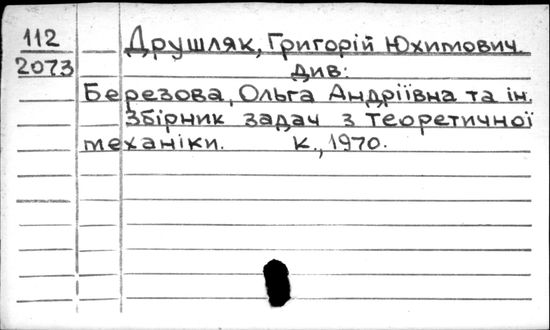 112
2073
Друшляк, Григорій Юхимович.
див:
Березова, Ольга Андріївна та ін.
Збірник задач з теоретичної
механіки. К., 1970.